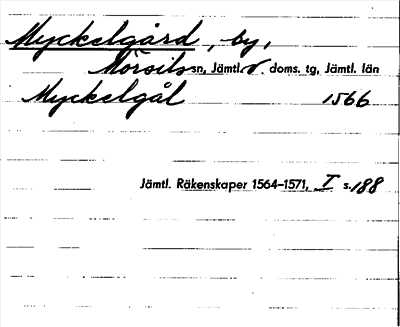 Myckelgård, by,
Mörsils sn, Jämtl. v. doms. tg, Jämtl. län
Myckelgål 1566
Jämtl. Räkenskaper 1564–1571, I s. 188